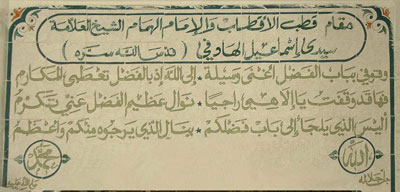 مقام قطب الاقطاب والإمام الهمام الشيخ العلامة
سيدي إسماعيل الهادفي ( قدس الله سره )
وقوفي بباب الفضل وسيلة • إلى الله إذ بالفضل تعطى المكارم
فها قد وقفت يا إلاهي راجيا • نوال عظيم الفضل عني تكرم
أليس الذي يلجأ إلى باب فضلكم • ينال الذي يرجوه منكم وأعظم
الله
محمد
جل جلاله